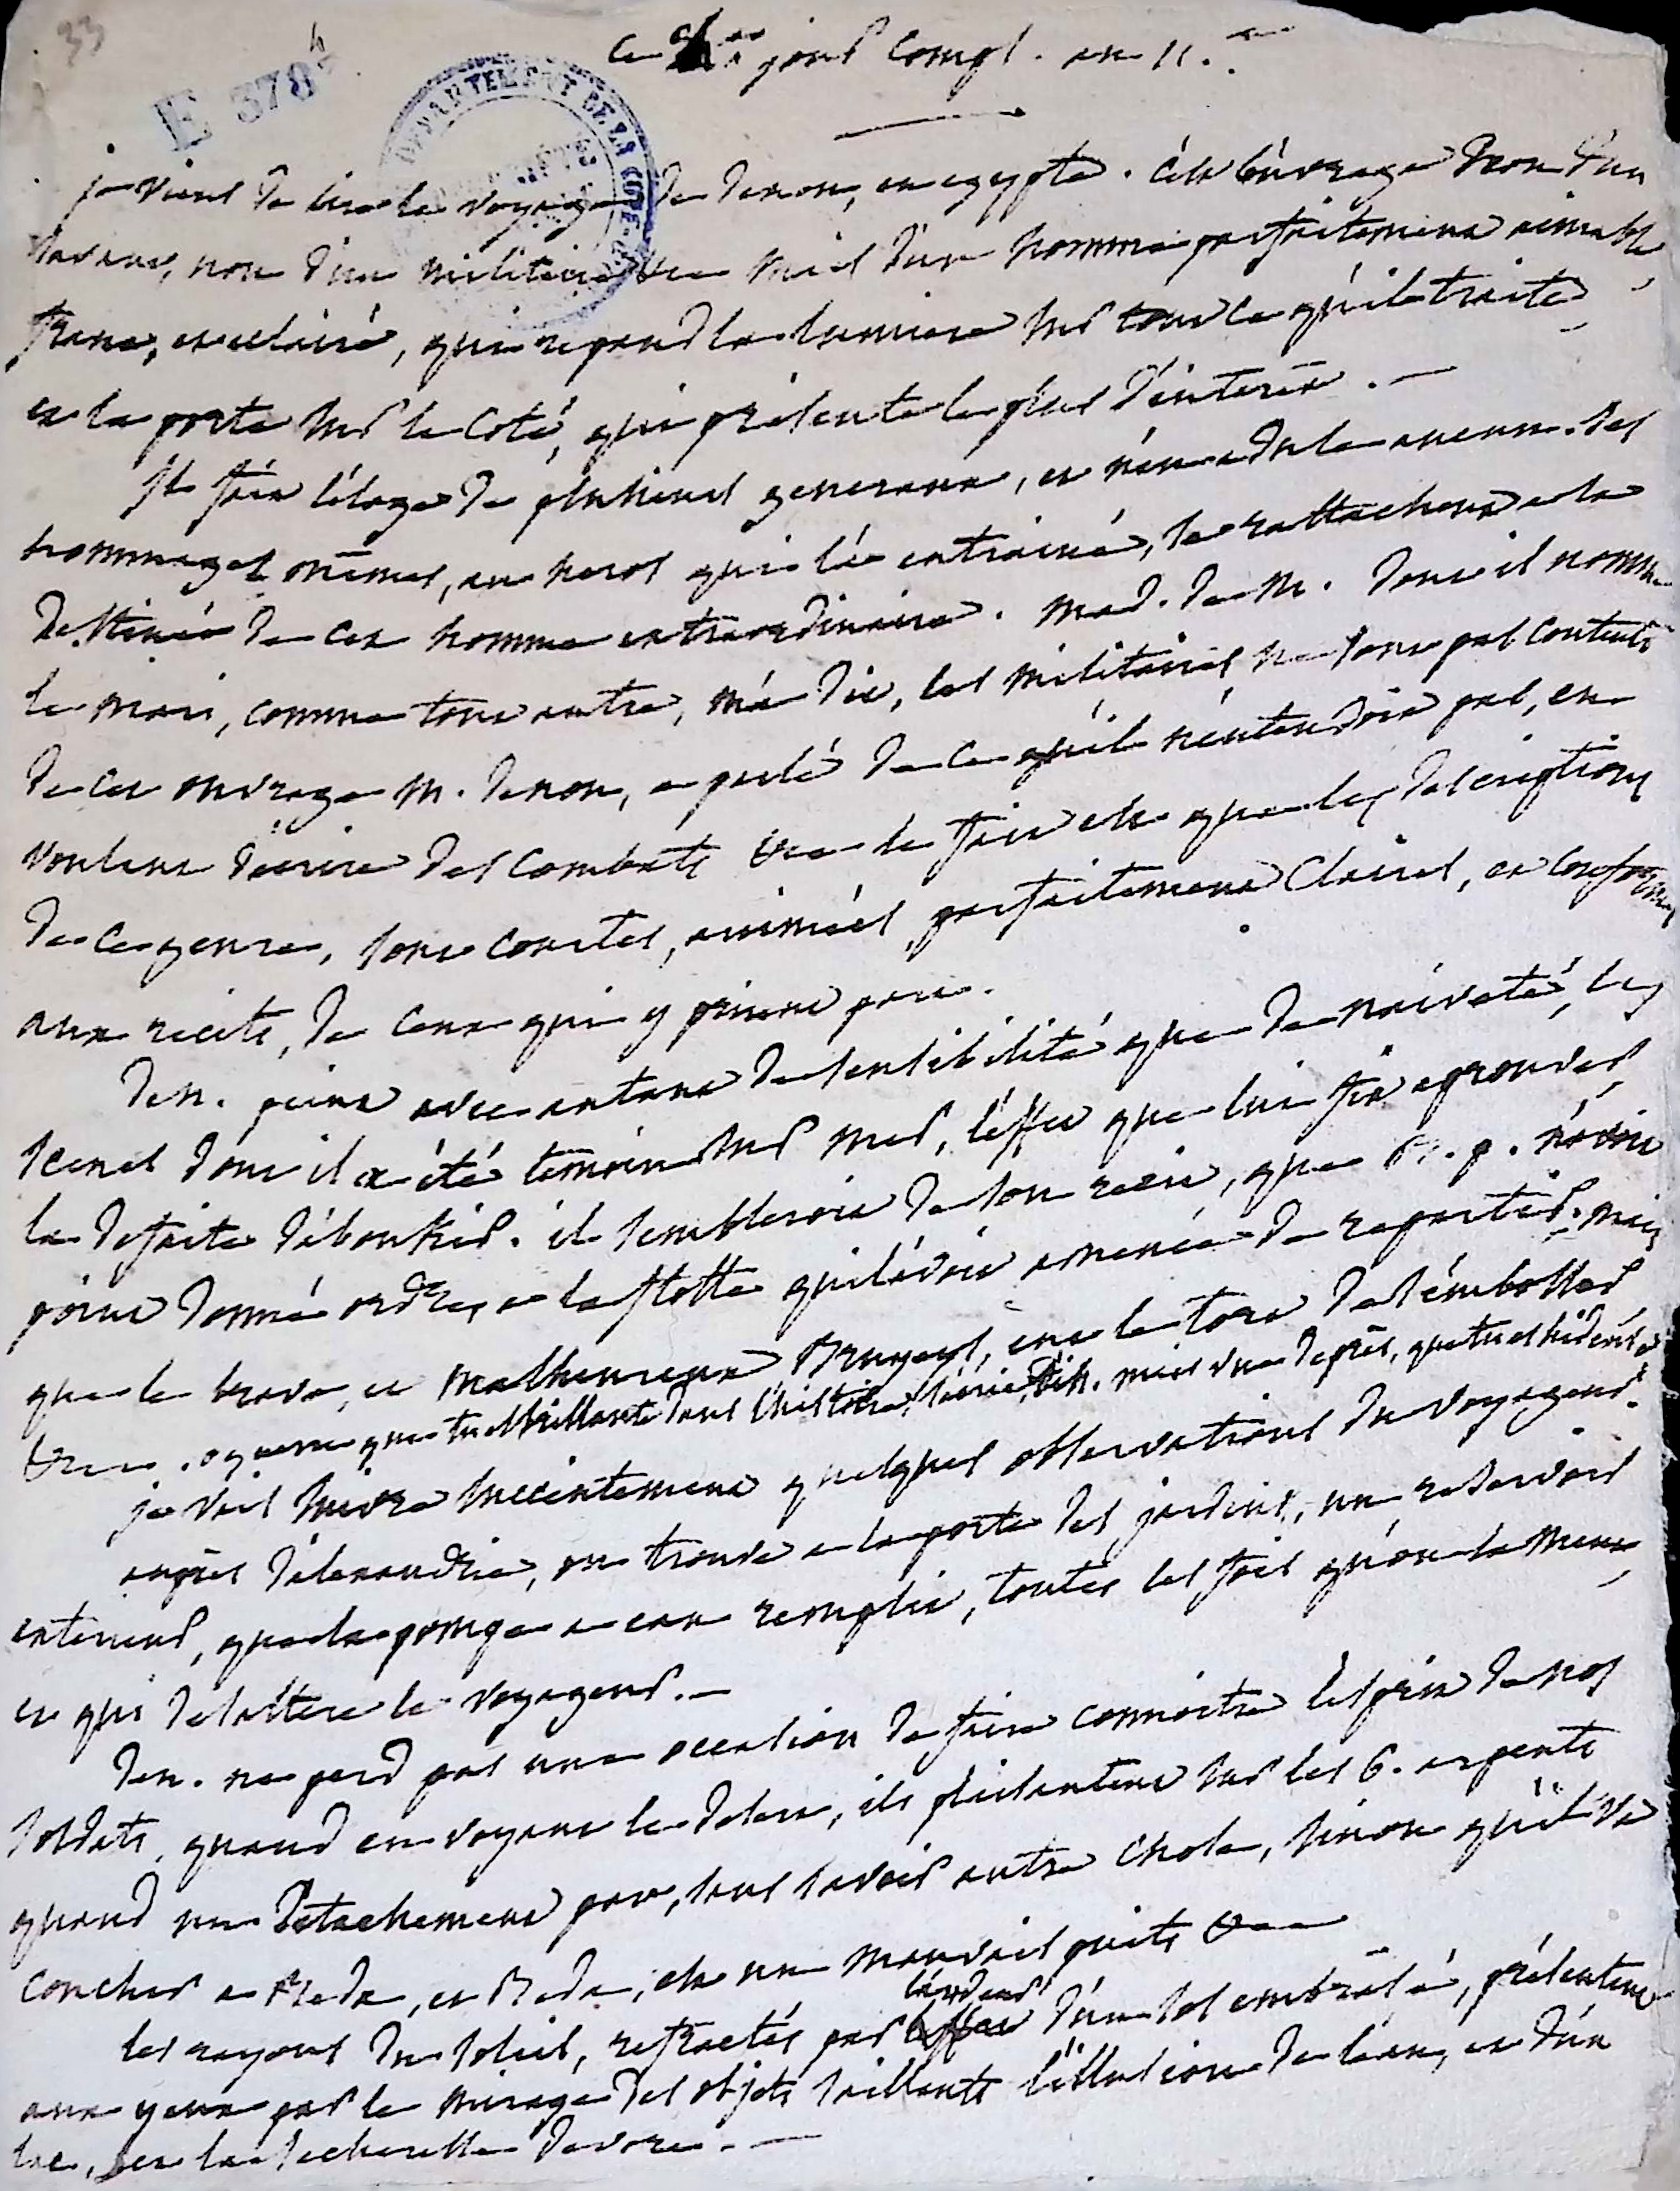 33
E 378
DEPARTEMENT DE LA COTE-D'OR
ce jour compl. an 11.
je viens de lire le voyage de denon, en egypte. c'est l'ouvrage non d'un
savant, non d'un militaire &c mais d'un homme parfaitement aimable,
franc, et eclairé, qui repand la lumiere sur tout ce qu'il traite,
et la porte sur le coté, qui présente le plus d'interet. —
Il fait l'éloge de plusieurs generaux, et n'en adule aucun. ses
hommages mêmes, au heros qui l'a entrainé, se rattachent a la
destinée de cet homme extraordinaire. mad. de M. dont il nomme
le mari, comme tout autre, m'a dit, les militaires ne sont pas contents
de cet ouvrage M. denon, a parlé de ce qu'il n'entendoit pas, en
voulant décrire des combats &c le fait est que les descriptions
de ce genre, sont courtes, animées, parfaitement claires, et conformes
aux recits, de ceux qui y prirent part.
den. peint avec autant de sensibilité que de naiveté, les
scenes dont il a été temoin sur mer, l'effet que lui fit eprouver
la defaite d'aboukir. il sembleroit de son recit, que B. p. n'avoit
point donné ordre, a la flotte qu'il avoit amenée de repartir. mais
que le brave, et malheureux Brueys, eut le tort de s'embosser
&c. o guerre que tu es brillante dans l'histoire, s'ecrie den. mais vue de près, que tu es hideuse
je vais suivre succintement quelques observations du voyageur.
auprès d'alexandrie, on trouve a la porte des jardins, un reservoir
exterieur, que la pompe a eau remplit, toutes les fois qu'on la meut,
et qui desaltere le voyageur. —
den. ne perd pas une occasion de faire connoitre l'esprit de nos
soldats, quand en voyant le desert, ils plaisantent sur les 6. arpents
quand un détachement part, sans savoir autre chose, sinon qu'il va
coucher a Beda, et Beda, est un mauvais puits &c —
les rayons du soleil, refractés par l'ardeur d'un sol embrasé, présentent
aux yeux par le mirage des objets saillants l'illusion de l'eau, et d'un
lac, et la secheresse devore. —